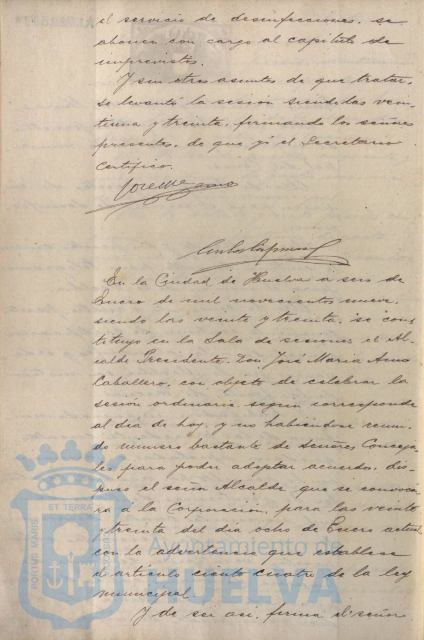 el servicio de desinfecciones, se
abonen con cargo al capítulo de
imprevistos.
Y sin otros asuntos de que tratar,
se levantó la sesión siendo las vein-
tiuna y treinta, firmando los señores
presentes, de que yo el Secretario
certifico.
En la Ciudad de Huelva a seis de
Enero de mil novecientos nueve,
siendo las veinte y treinta, se cons-
tituyó en la Sala de sesiones el Al-
calde Presidente Don José María Amo
Caballero, con objeto de celebrar la
sesión ordinaria según corresponde
al día de hoy, y no habiéndose reuni-
do número bastante de Señores Conceja-
les para poder adoptar acuerdos, dis-
puso el señor Alcalde que se convoca-
ra a la Corporación, para las veinte
y treinta del día ocho de Enero actual
con la advertencia que establece
el artículo ciento cuatro de la ley
municipal.
Y de ser así, firma el señor
PORTUS MARIS ET TERRAE
Ayuntamiento de
HUELVA